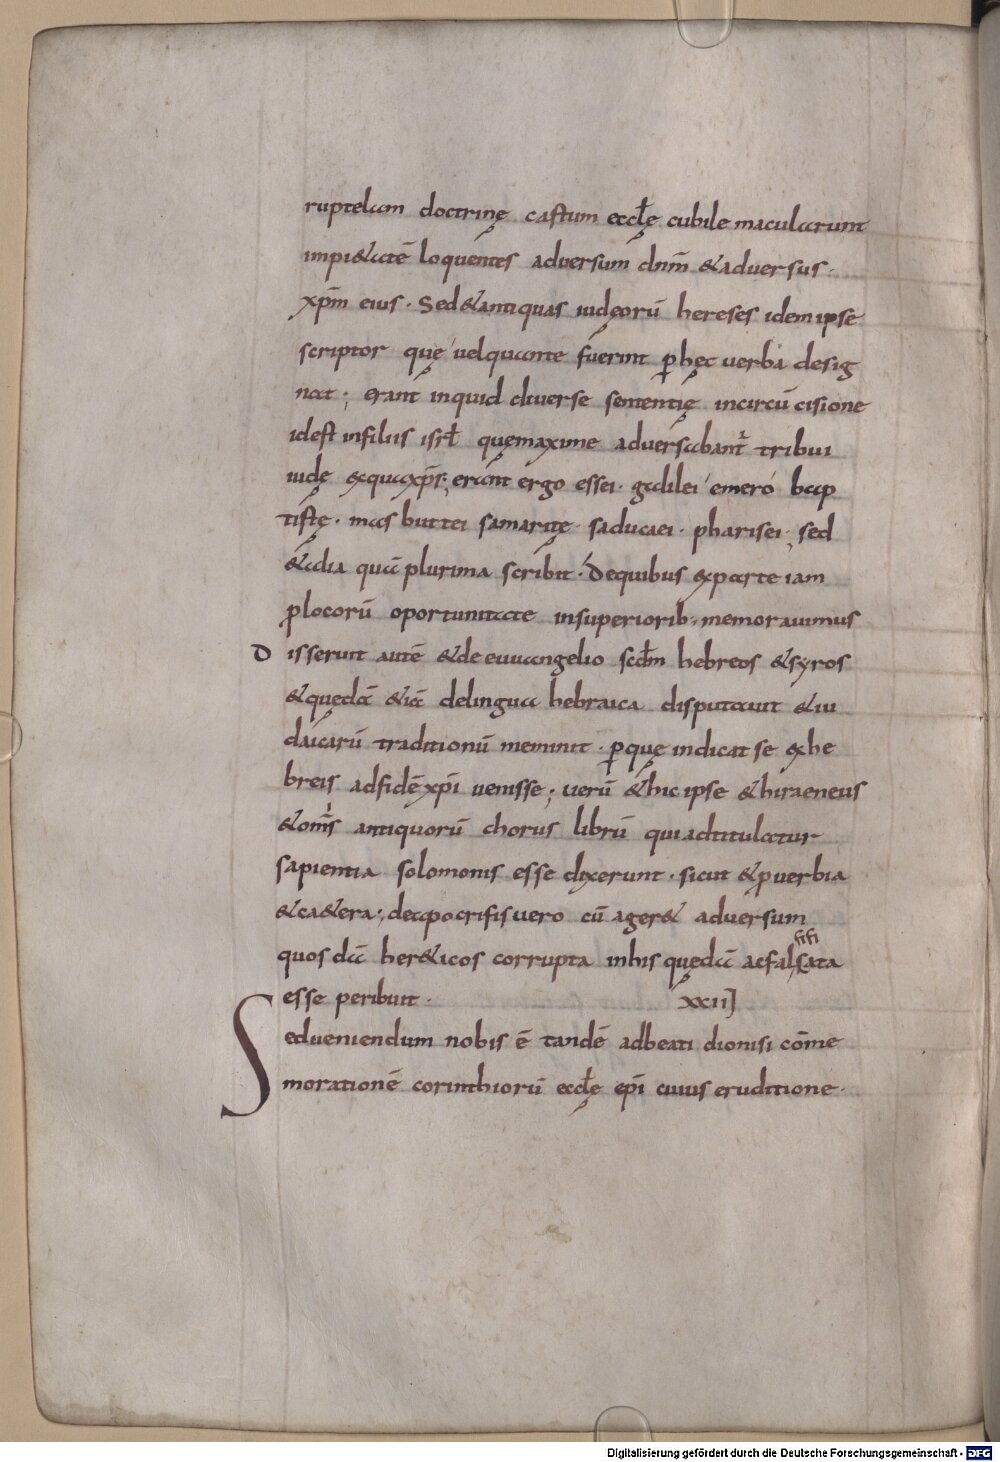 ruptelam doctrinę castum eccłę cubile macularunt
impi&atē loquentes adversum dnm̄ &adversus·
xp̄m eius · Sed&antiquas iudęorū hereses idem ipse
scriptor quę uelquante fuerint ꝑhęc verba desig
nat ; erant inquid diverse sententię incircū cisione
idest infiliis isrł quęmaxime adversabant᷑ tribui
iudę exquaxp̄s; erant ergo essei · galilei emero bap
tistę · mas buttei samaritę · saducaei · pharisei ; sed
&alia quā plurima scribit · Dequibus exparte iam
ꝓlocorū oportunitate insuperiorib; memoravimus
Disserunt autē &de euuangelio scd̄m hebreos &syros
&quędā &iā delingua hebraica disputauit &iu
daicarū traditionū meminit · ꝑquę indicat se exhe
breis adfidēxp̄i uenisse ; uerū &hic ipse &hiraeneus
&om̄s antiquorū chorus librū qui adtitulatur
sapientia solomonis esse dixerunt · sicut &ꝓverbia
&ca&era ; deapocrifis uero cū ager& adversum
quos dā her&icos corrupta inhis quędā acfalsata
fifi
esse peribuit · xxii]
Sedueniendum nobis ē tandē adbeati dionisi cōme
morationē corinthiorū eccłę ep̄i cuius eruditione·
Digitalisierung gefördert durch die Deutsche Forschungsgemeinschaft - DFG